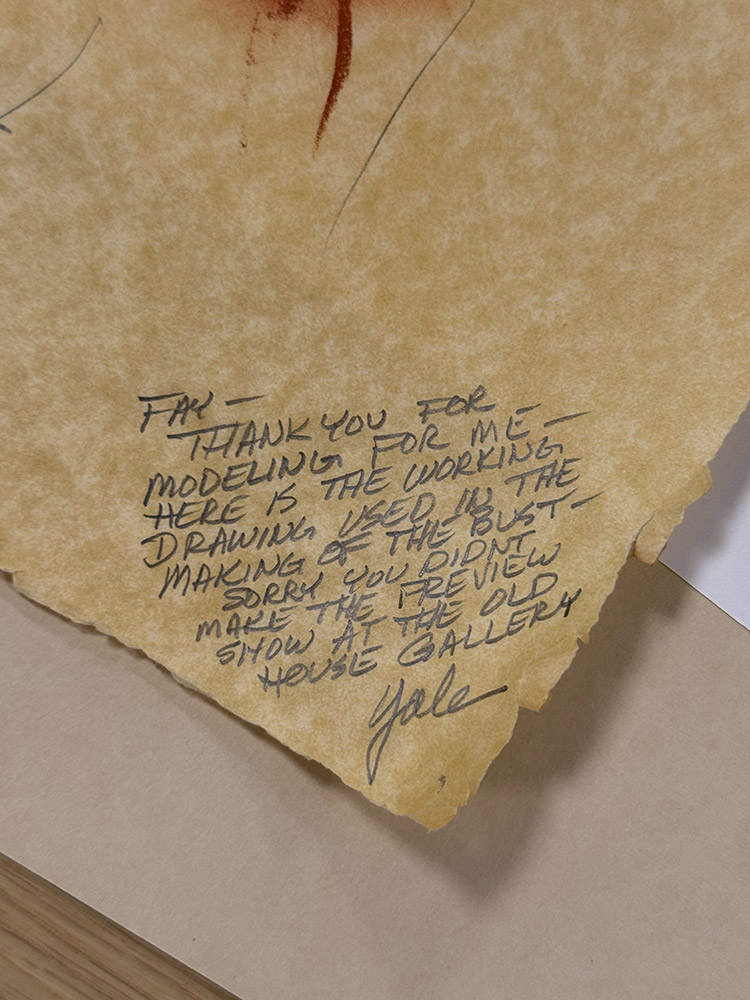 FAY —
THANK YOU FOR
MODELING FOR ME —
HERE IS THE WORKING
DRAWING USED IN THE
MAKING OF THE BUST —
SORRY YOU DIDNT
MAKE THE PREVIEW
SHOW AT THE OLD
HOUSE GALLERY
Yale